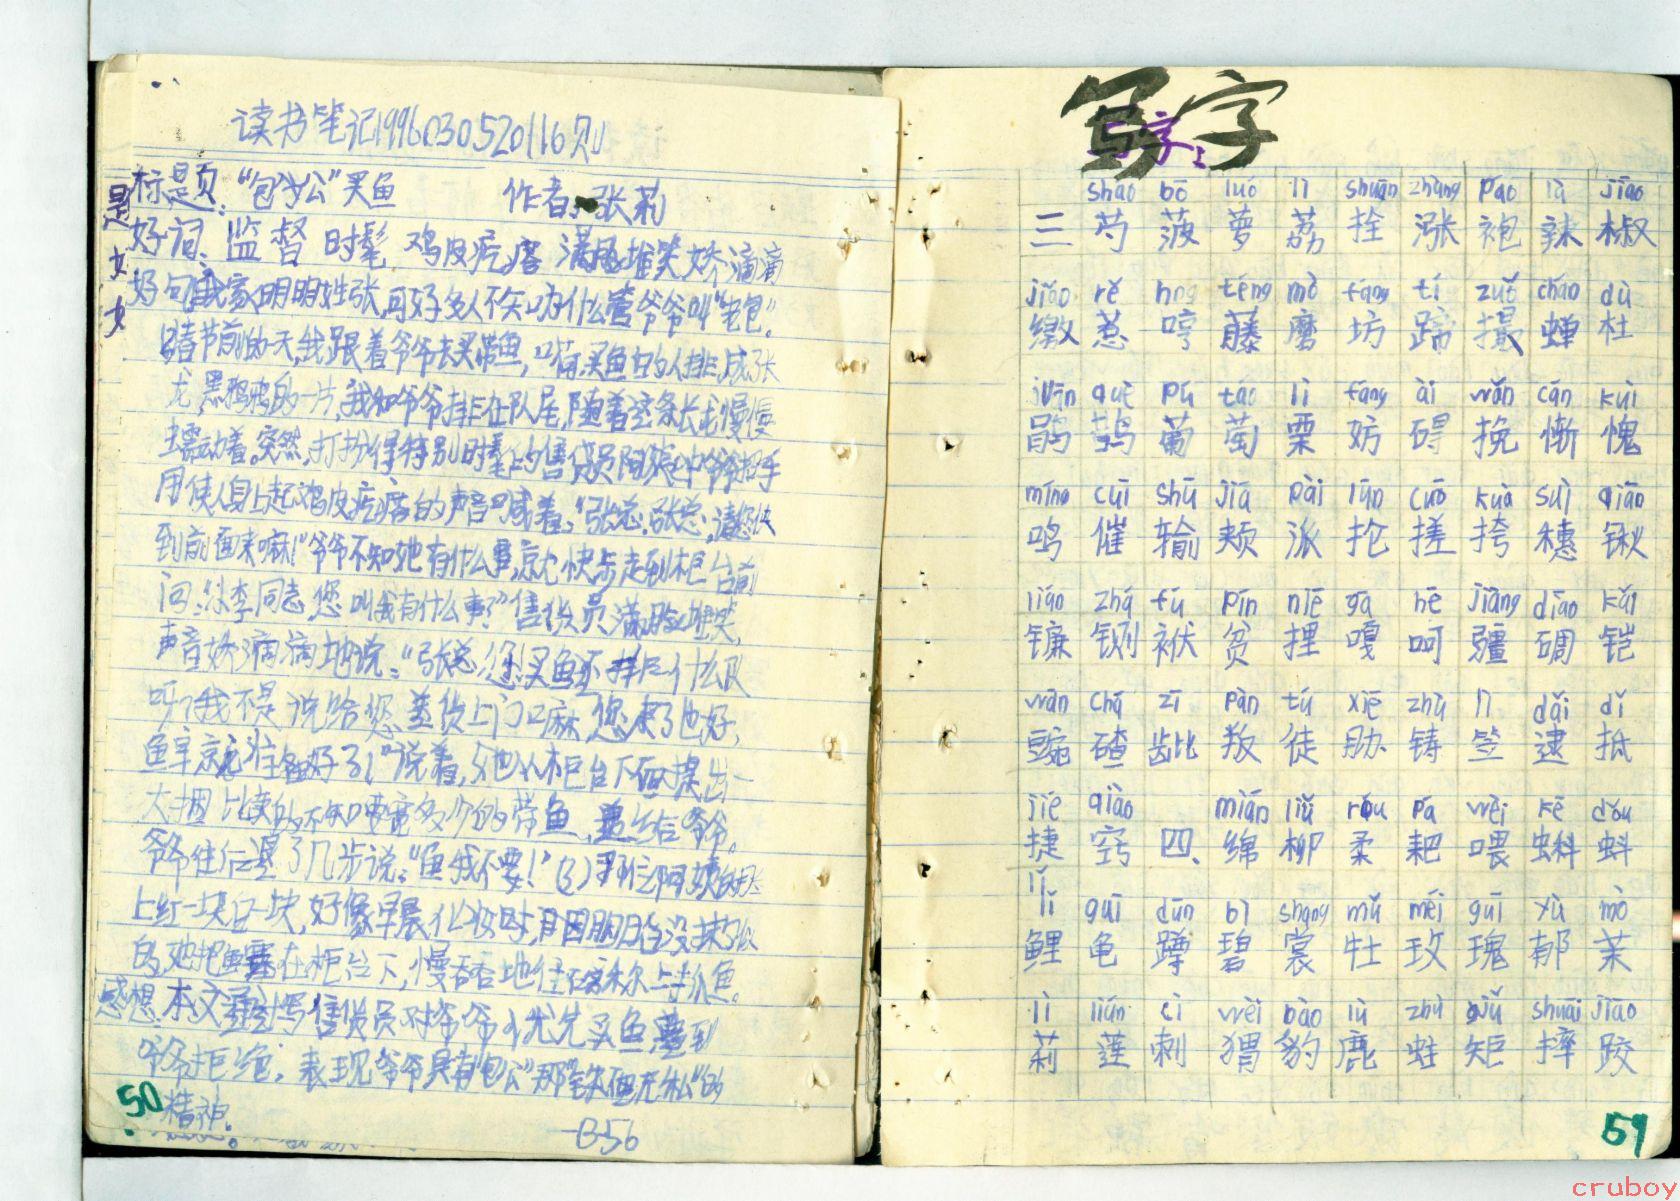 读书笔记1996030520116则
标题:“包公”买鱼 作者:张莉
好词:监督 时髦 鸡皮疙瘩 满脸堆笑 娇滴滴
好句:我家明明姓张,可好多人不知为什么管爷爷叫“老包”。
春节前的一天,我跟着爷爷去买带鱼,嗬,买鱼的人排成长
龙,黑鸦鸦的一片,我和爷爷排在队尾,随着这条长龙慢慢
蠕动着。突然,打扮得特别时髦的售货员阿姨冲爷爷招手
用使人身上起鸡皮疙瘩的声音喊着:“张总,张总,请您快
到前面来嘛!”爷爷不知她有什么事,就快步走到柜台前
问:“小李同志,您叫我有什么事?”售货员满脸堆笑,
声音娇滴滴地说:“张总,您买鱼还排什么队
呀?我不是说给您送货上门嘛,您来了也好,
鱼早就准备好了!”说着,她从柜台下面提出一
大捆 的带鱼,递给爷爷。
爷爷往后退了几步说:“鱼我不要!”(3)那位阿姨的脸
上红一块白一块,好像早晨化妆时,
的,她把鱼塞在柜台下,慢吞吞地往 上 鱼。
感想:本文通过写售货员对爷爷优先买鱼遭到
爷爷拒绝,表现爷爷具有“包公”那“铁面无私”的
精神。
—B56
50
是
女
女
写字
写字
shao bō luó lì shuān zhàng páo là jiāo
三 芍 菠 萝 荔 拴 涨 袍 辣 椒
jiǎo rě hng téng mò fáng tí zuǒ chán dù
缴 惹 哼 藤 磨 坊 蹄 撮 蝉 杜
juān què pú táo lì fáng ài wǎn cán kuì
鹃 鹊 葡 萄 栗 妨 碍 挽 惭 愧
míng cuī shū jiá pài lūn cuō kuà suì qiāo
鸣 催 输 颊 派 抡 搓 挎 穗 锹
liáo zhá fú pín niē gā hē jiāng diāo kǎi
镰 铡 袱 贫 捏 嘎 呵 疆 碉 铠
wān chá zī pàn tú xié zhù lì dǎi dǐ
豌 碴 龇 叛 徒 胁 铸 笠 逮 抵
jié qiào mián liǔ róu pá wèi kē dǒu
捷 窍 四、 绵 柳 柔 耙 喂 蝌 蚪
lǐ guī dūn bì shang mǔ méi guī yù mò
鲤 龟 蹲 碧 裳 牡 玫 瑰 郁 茉
lì lián cì wèi bào lù zhù jǔ shuāi jiāo
莉 莲 刺 猬 豹 鹿 蛀 矩 摔 跤
51
cruboy